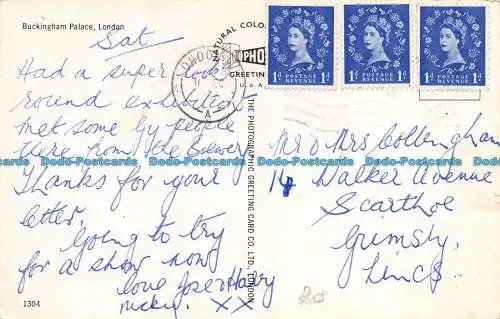 Buckingham Palace, London
Sat
Had a super look
round exhibition
met some by people
there from the Brewery
Thanks for your
letter.
Going to try
for a show now
love Joser Harry
XX
1304
NATURAL COLO
PHO
GREETING
U.S.A.
LONDON
A
THE PHOTOGRAPHIC GREETING CARD CO. LTD., LONDON
1d POSTAGE REVENUE 1d
1d POSTAGE REVENUE 1d
1d POSTAGE REVENUE 1d
Mr & Mrs Collingham
14 Walker Avenue
Scarthoe
Grimsby,
Lincs.
Dodo-Postcards Dodo-Postcards Dodo-Postcards Dodo-Postcards
Dodo-Postcards Dodo-Postcards Dodo-Postcards Dodo-Postcards